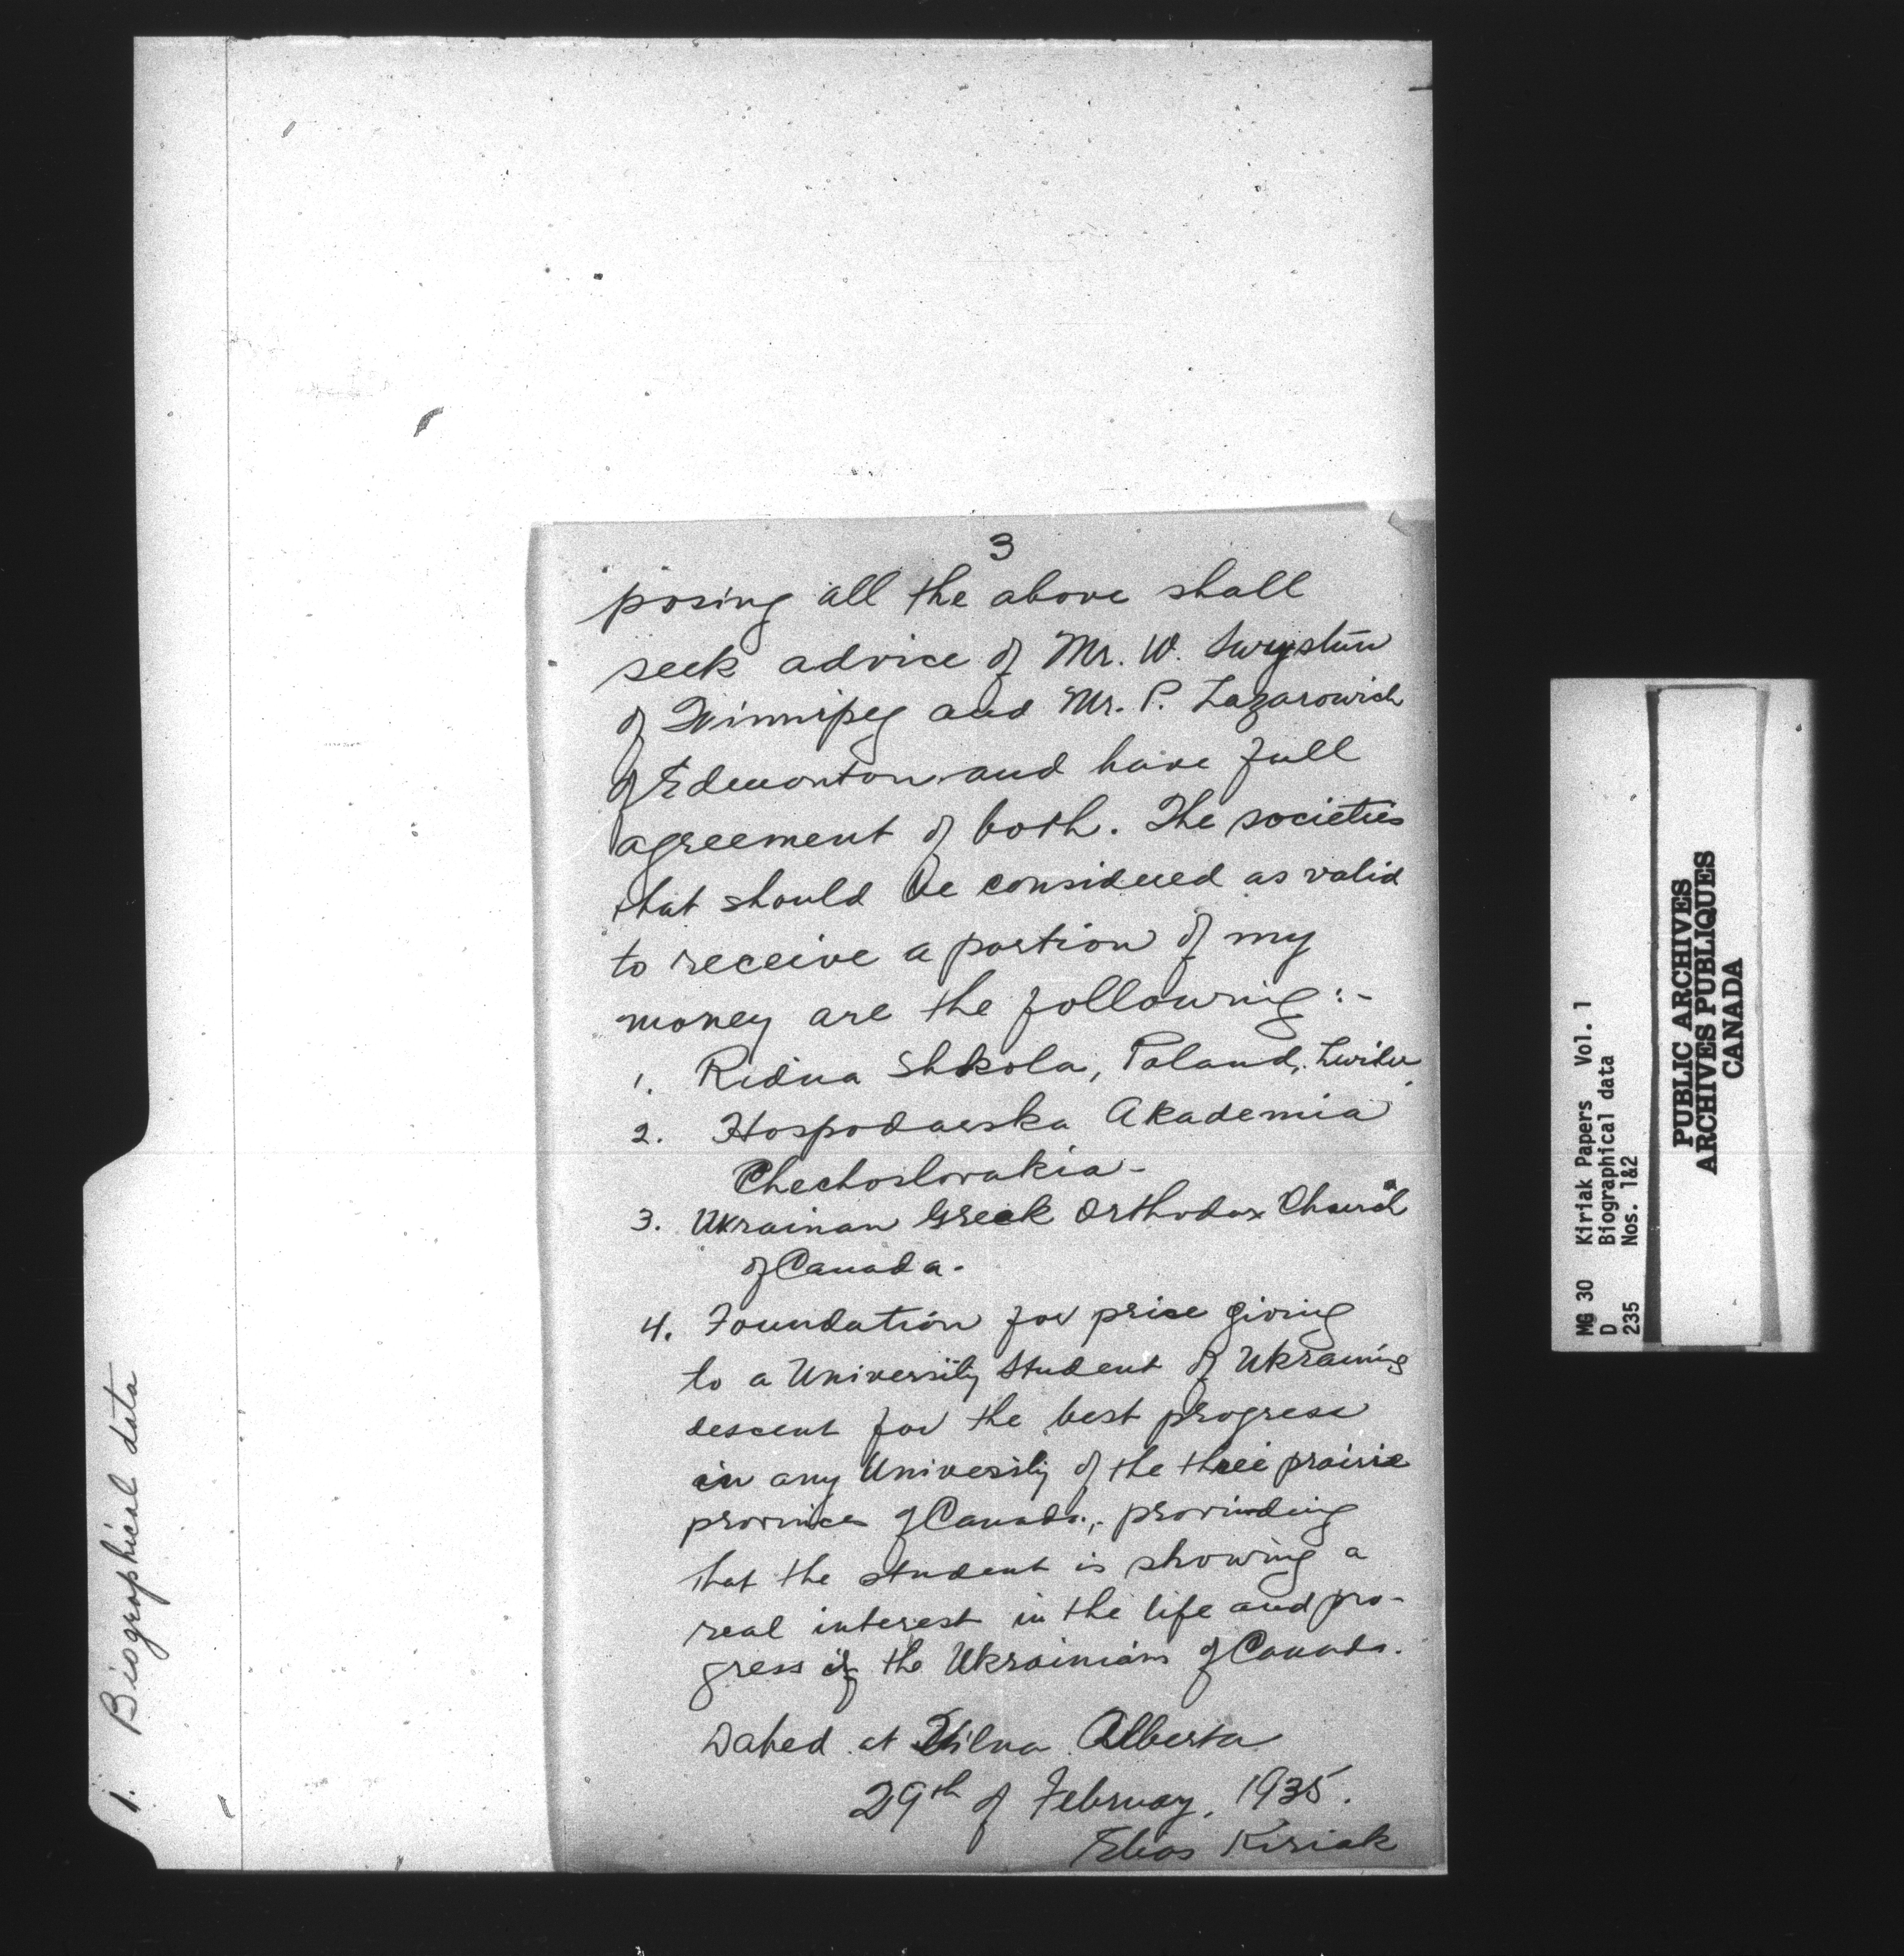 3
posing all the above shall
seek advice of Mr. W. Swystun
of Winnipeg and Mr. P. Lazarowich
of Edmonton and have full
agreement of both. The societies
that should be considered as valid
to receive a portion of my
money are the following:-
1. Ridna Shkola, Poland,
2. Hospodarska Akademia
Chechoslovakia-
3. Ukrainan Greek Orthodox Church
of Canada.
4. Foundation for price giving
to a University Student of
descent for the best progress
in any University of the three prairie
provinces of Canada, provinding
that the student is showing a
real interest in the life and pro-
gress of the Ukrainians of Canada.
Dated at Vilna Alberta
29th of February, 1935.
Elias Kiriak
1. Biographical data
MG 30 Kiriak Papers Vol. 1
D Biographical data
235 Nos. 1&2
PUBLIC ARCHIVES
ARCHIVES PUBLIQUES
CANADA